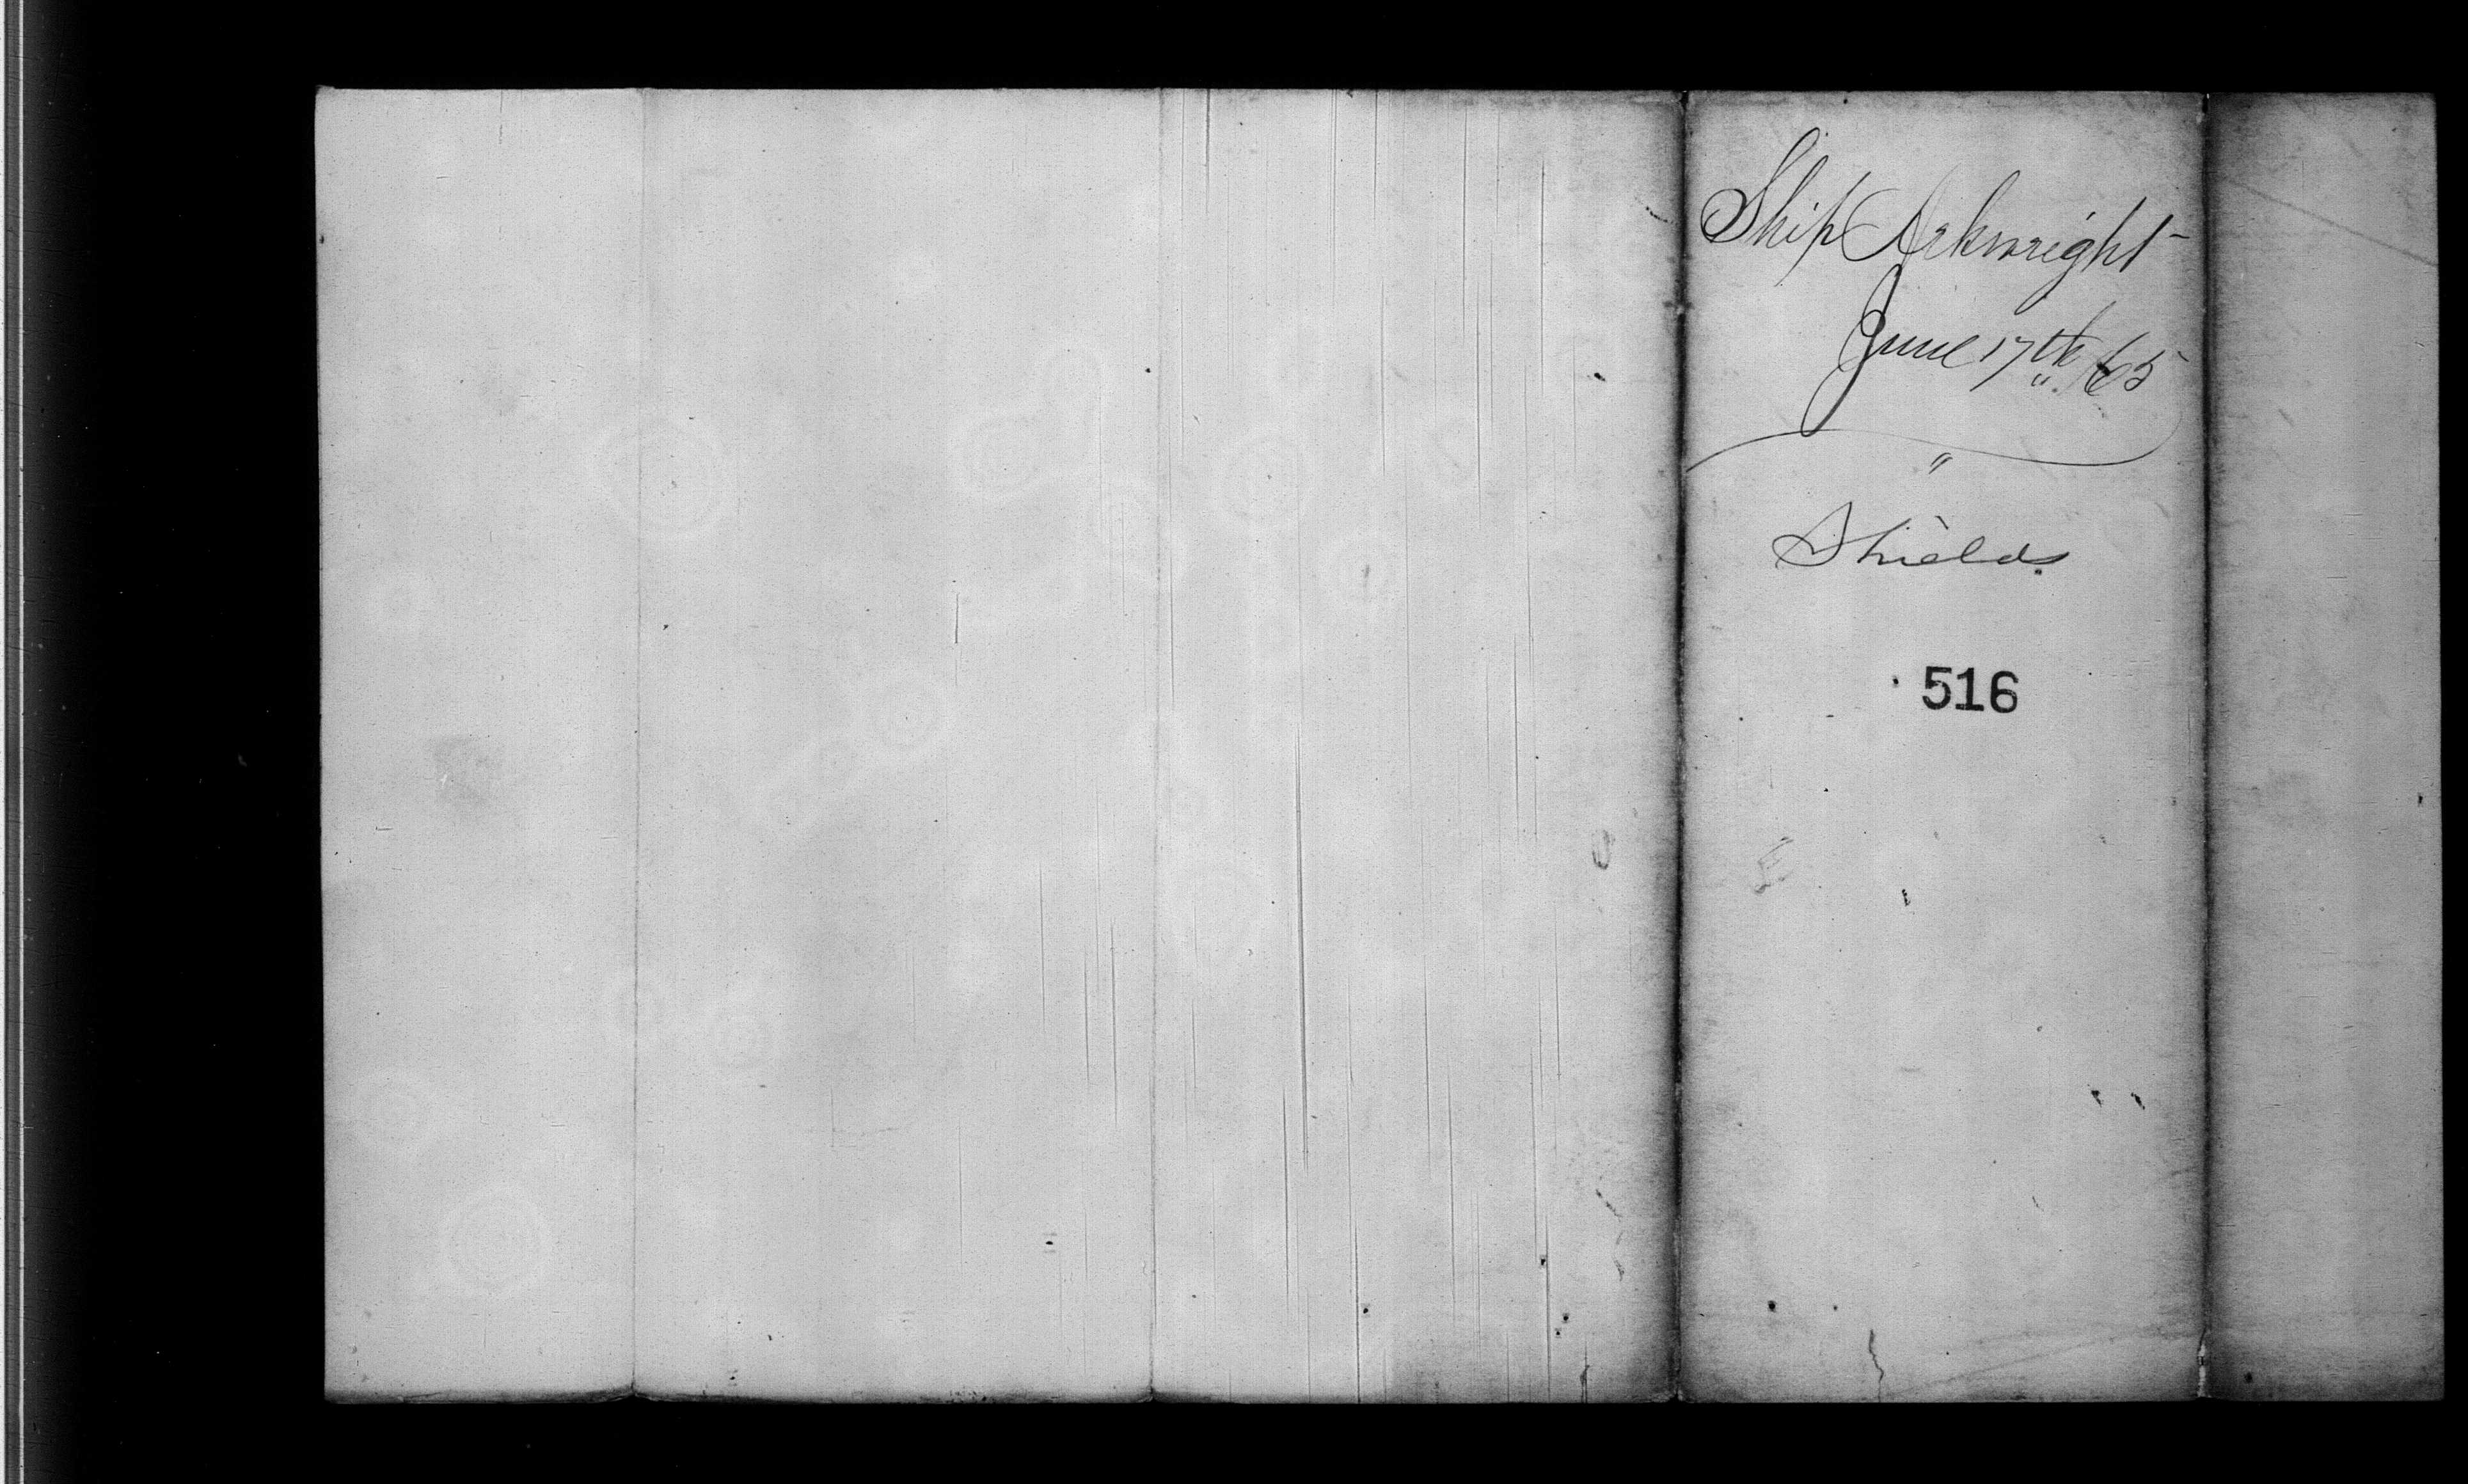 Ship Arkwright
June 17th /65
"
Shields
516